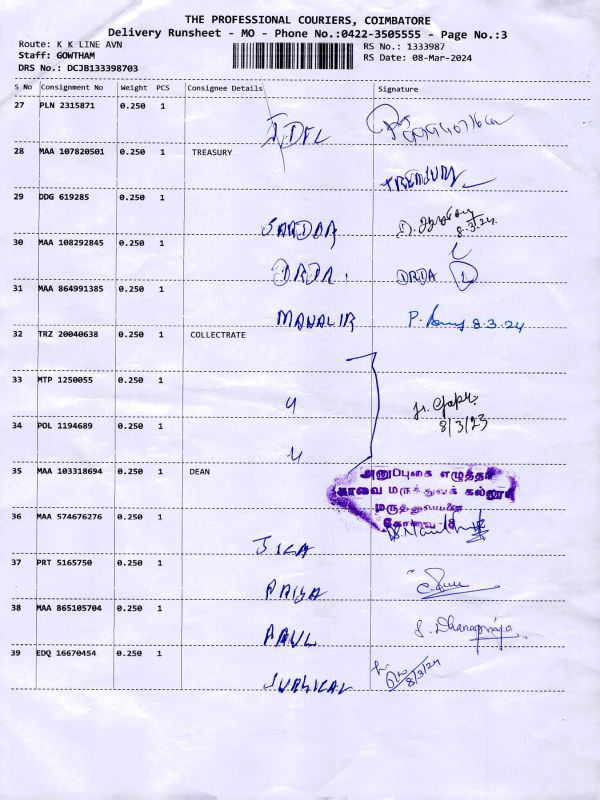 THE PROFESSIONAL COURIERS, COIMBATORE
Delivery Runsheet - MO - Phone No.:0422-3505555 - Page No.:3
Route: K K LINE AVN
RS No.: 1333987
Staff: GOWTHAM
RS Date: 08-Mar-2024
DRS No.: DCJB133398703
S No Consignment No Weight PCS Consignee Details Signature
27 PLN 2315871 0.250 1
28 MAA 107820501 0.250 1 TREASURY
29 DDG 619285 0.250 1
SARDAR 8.3.24
30 MAA 108292845 0.250 1
DRDA DRDA
31 MAA 864991385 0.250 1
8.3.24
32 TRZ 20040638 0.250 1 COLLECTRATE
33 MTP 1250055 0.250 1
8/3/23
34 POL 1194689 0.250 1
35 MAA 103318694 0.250 1 DEAN
அனுப்புகை எழுத்தர்
கோவை மருத்துவக் கல்லூரி
மருத்துவமனை
கோவை
36 MAA 574676276 0.250 1
37 PRT 5165750 0.250 1
38 MAA 865105704 0.250 1
PAUL
39 EDQ 16670454 0.250 1
8/3/24
SURGICAL